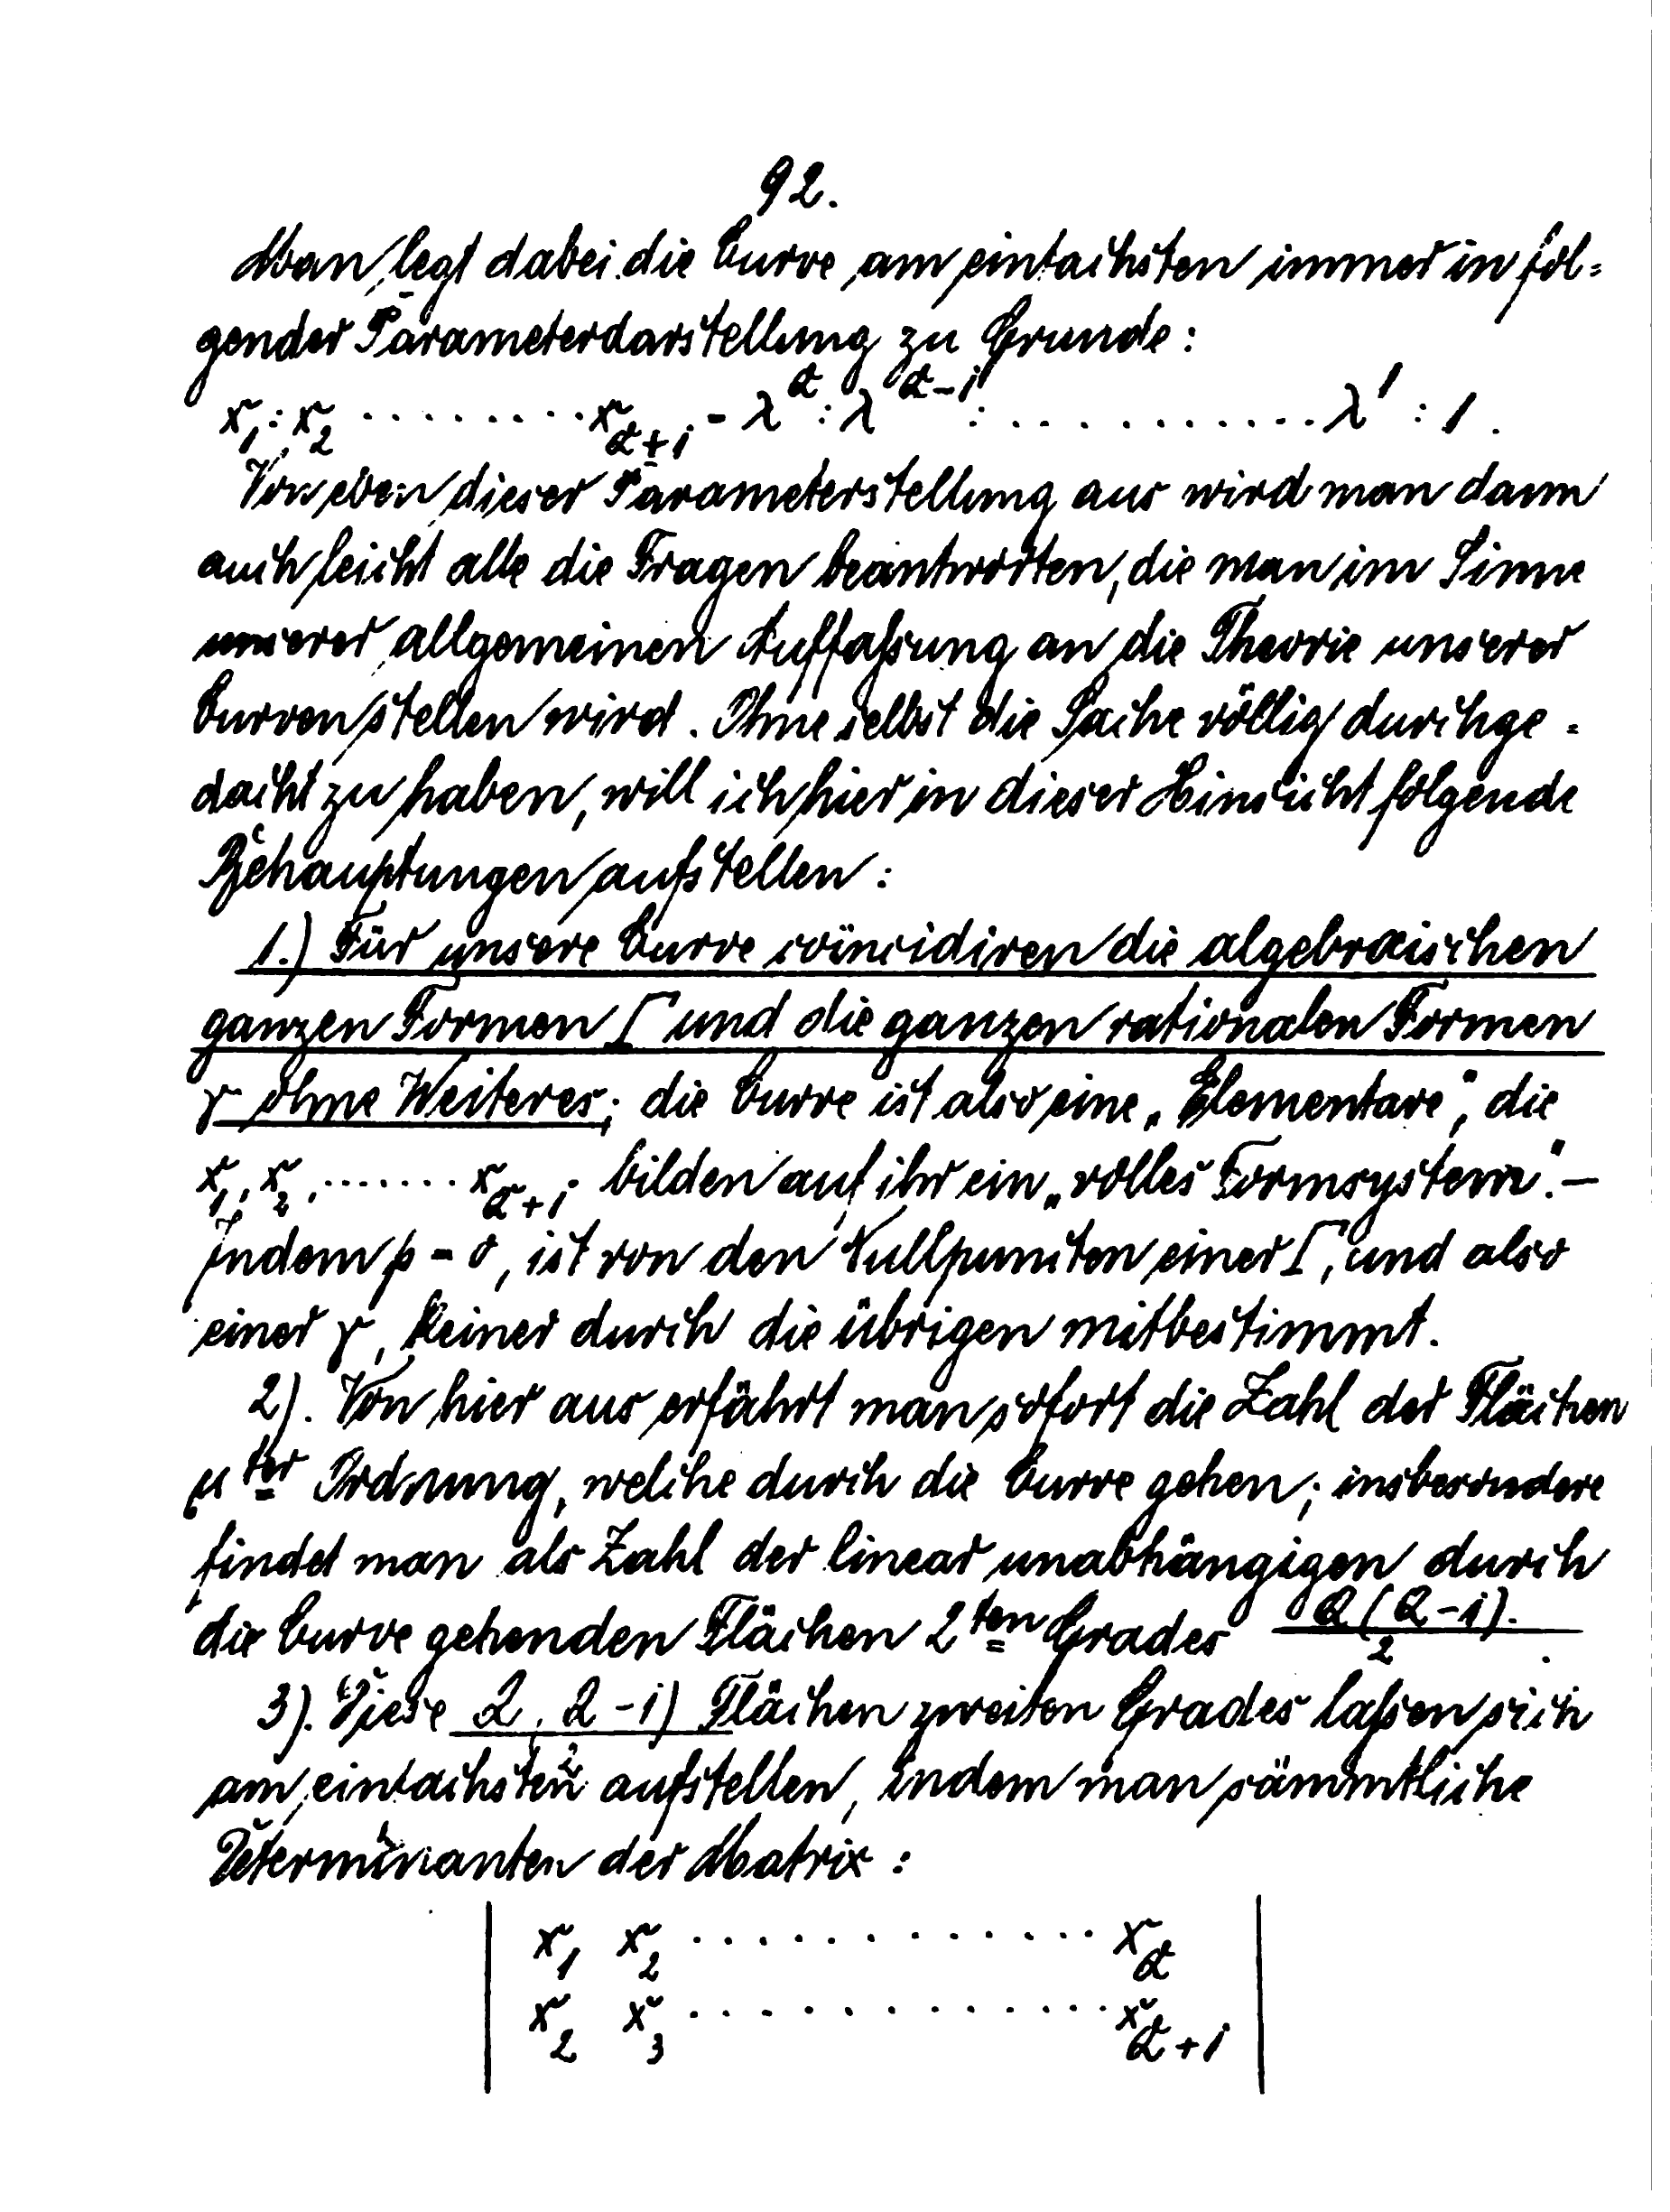 92.
Man legt dabei die Curve am einfachsten immer in fol=
gender Parameterdarstellung zu Grunde:
x₁ : x₂ ......... x_{α+1} = λ^α : λ^{α-1} : ............ λ¹ : 1.
Von eben dieser Parameterstellung aus wird man dann
auch leicht alle die Fragen beantworten, die man im Sinne
unserer allgemeinen Auffaßung an die Theorie unserer
Curven stellen wird. Ohne selbst die Sache völlig durchge=
dacht zu haben, will ich hier in dieser Hinsicht folgende
Behauptungen aufstellen:
1.) Für unsere Curve coïncidiren die algebraischen
ganzen Formen Γ und die ganzen rationalen Formen
γ ohne Weiteres; die Curve ist also eine „Elementare", die
x₁, x₂, ....... x_{α+1} bilden auf ihr ein „volles Formsystem". —
Indem p = 0, ist von den Nullpuncten einer Γ, und also
einer γ, keiner durch die übrigen mitbestimmt.
2). Von hier aus erfährt man sofort die Zahl der Flächen
μ ter Ordnung, welche durch die Curve gehen; insbesondere
findet man als Zahl der linear unabhängigen durch
die Curve gehenden Flächen 2 ten Grades α(α-1)/2.
3). Diese α(α-1)/2 Flächen zweiten Grades laßen sich
am einfachsten aufstellen, indem man sämmtliche
Determinanten der Matrix:
| x₁ x₂ ............ x_α |
| x₂ x₃ ............ x_{α+1} |